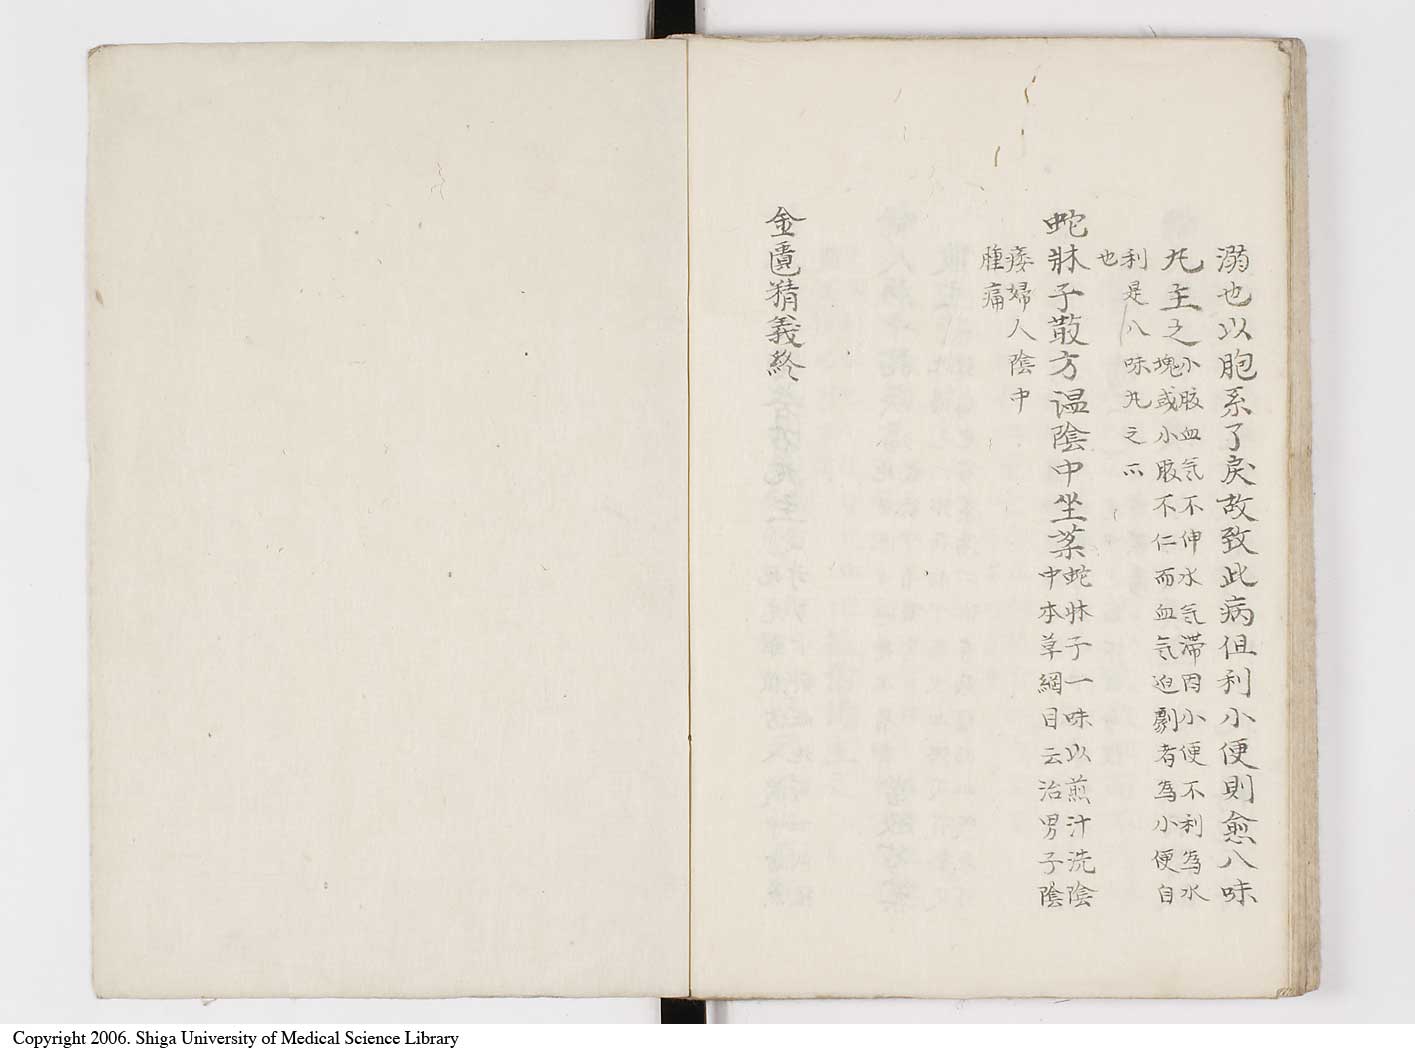 溺也以胞系了戾故致此病但利小便則愈八味
丸主之
小腹血気不伸水気滞因小便不利為水
塊或小腹不仁而血気迫劇者為小便自
利是八味丸之所
也
蛇牀子散方温陰中坐薬
蛇牀子一味以煎汁洗陰
中本草綱目云治男子陰
痿婦人陰中
腫痛
金匱精義終
Copyright 2006. Shiga University of Medical Science Library